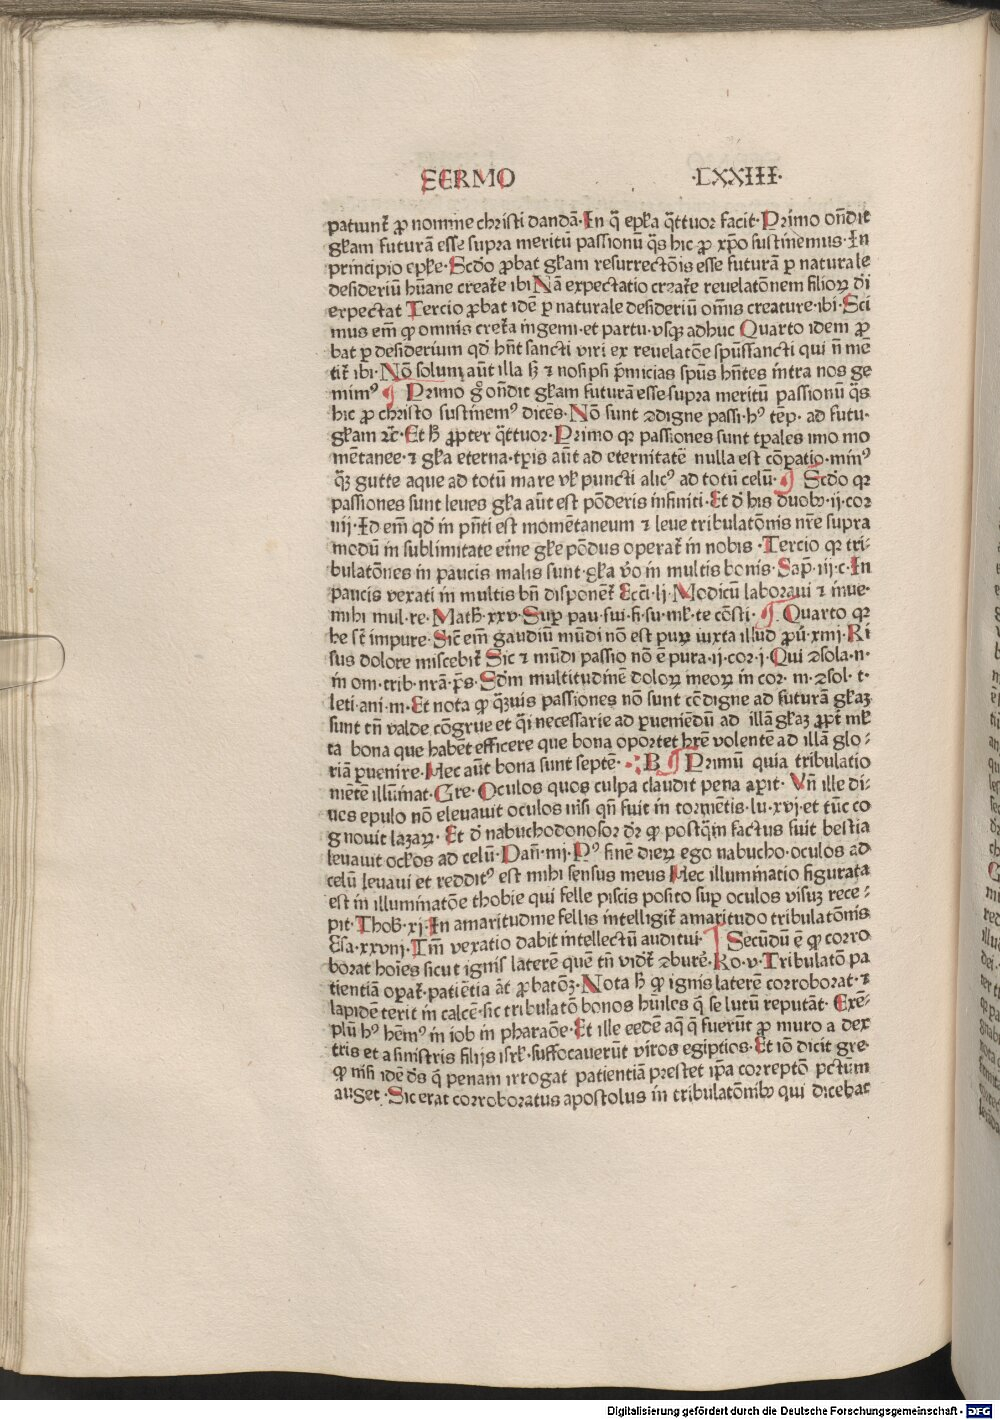 SERMO ·LXXIII·
patiunt᷑ ꝓ nomine christi dandā· In q̄ ep̄la q̄ttuor facit· Primo on̄dit
gl̄iam futurā esse supra meritū passionū q̄s hic ꝓ xp̄o sustinemus· In
principio ep̄le· Scd̄o ꝓbat gl̄iam resurrectōis esse futurā ꝑ naturale
desideriū hūane creat᷑e ibi Nā expectatio creat᷑e reuelatōnem filioꝝ di
expectat Tercio ꝓbat idē ꝑ naturale desideriū om̄is creature· ibi· Sci
mus em̄ ꝙ omnis cret᷑a ingemi· et partu· vsqꝫ adhuc Quarto idem ꝓ
bat ꝑ desiderium qd̄ hn̄t sancti viri ex reuelatōe spūssancti qui n̄ mē
tit᷑ ibi· Nō solum aūt illa sꝫ ⁊ nos ip̄i p̄micias spūs hn̄tes intra nos ge
mimꝰ ¶ Primo gͦ on̄dit gl̄iam futurā esse supra meritū passionū q̄s
hic ꝓ christo sustinemꝰ dicēs· Nō sunt ꝯdigne passi· hꝰ tēp· ad futu·
gl̄iam ⁊c̄· Et h̄ ꝓpter q̄ttuor· Primo qꝛ passiones sunt tp̄ales imo mo
mētanee· ⁊ gl̄ia eterna· tp̄is aūt ad eternitatē nulla est cōpatio· minꝰ
q̄ꝫ gutte aque ad totū mare vl̄ puncti alicꝰ ad totū celū· ¶ Scd̄o qꝛ
passiones sunt leues gl̄ia aūt est pōderis infiniti· Et d̄ his duobꝫ· ij· cor
iiij· Id em̄ qd̄ in p̄nti est momētaneum ⁊ leue tribulatōnis nr̄e supra
modū in sublimitate et̄ne gl̄ie pōdus operat᷑ in nobis · Tercio qꝛ tri⸗
bulatōnes in paucis malis sunt· gl̄ia v̄o in multis bonis· Sap̄· iij· c· In
paucis vexati in multis bn̄ disponent᷑ Ecc̄i· lj· Modicū laboraui ⁊ inue·
mihi mul· re· Math̄· xxv· Suꝑ pau· fui· fi· su· ml̄· te cōsti· ¶ Quarto qꝛ
he st̄ impure· Sic̄ em̄ gaudiū mūdi nō est puꝝ iuxta illud ꝓū· xiiij· Ri
sus dolore miscebit᷑ Sic ⁊ mūdi passio nō ē pura· ij· cor· j· Qui ꝯsola· n·
in om· trib· nrā· p̄s· Sd̄m multitudinē doloꝝ meoꝝ in cor· m· ꝯsol· t·
leti· ani· m· Et nota ꝙ q̄ꝫuis passiones nō sunt cōdigne ad futurā gl̄iaꝫ
sunt tn̄ valde cōgrue et q̄si necessarie ad ꝑueniēdū ad illā gl̄iaꝫ ꝓpt᷑ ml̄
ta bona que habēt efficere que bona oportet hr̄e volentē ad illā glo⸗
riā ꝑuenire· Hec aūt bona sunt septē· B ¶ Primū quia tribulatio
mētē illūinat· Gre· Oculos quos culpa claudit pena aꝑit· Vn̄ ille di⸗
ues epulo nō eleuauit oculos nisi qn̄ fuit in tormētis· lu· xvj· et tūc co
gnouit lazaꝝ· Et d̄ nabuchodonosor dr̄ ꝙ postq̄in factus fuit bestia
leuauit oclos ad celū· Dan̄· iiij· Pꝰ finē dieꝝ ego nabucho· oculos ad
celū leuaui et redditꝰ est mihi sensus meus Hec illuminatio figurata
est in illuminatōe thobie qui felle piscis posito suꝑ oculos visuꝫ rece⸗
pit· Thob̄· xj· In amaritudine fellis intelligit᷑ amaritudo tribulatōnis
Esa· xxviij· Tm̄ vexatio dabit intellectū auditui· ¶ Secūdū ē ꝙ corro
borat hoīes sicut ignis laterē quē tn̄ vidt᷑ ꝯbure᷑· Ro· v· Tribulatō pa
tientiā oꝑat᷑· patiētia āt ꝓbatōꝫ· Nota h̄ ꝙ ignis laterē corroborat· ⁊
lapidē terit in calcē· sic tribulatō bonos hūiles q̄ se lutū reputāt· Exē⸗
plū hꝰ hēmꝰ in iob in pharaōe· Et ille eedē aq̄ q̄ fuerūt ꝓ muro a dex
tris et a sinistris filijs isrl̄· suffocauerūt viros egiptios· Et iō dicit gre·
ꝙ nisi idē ds̄ q̄ penam irrogat patientiā prestet ip̄a correptō pctūm
auget · Sic erat corroboratus apostolus in tribulatōnibꝫ qui dicebat
Digitalisierung gefördert durch die Deutsche Forschungsgemeinschaft - DFG